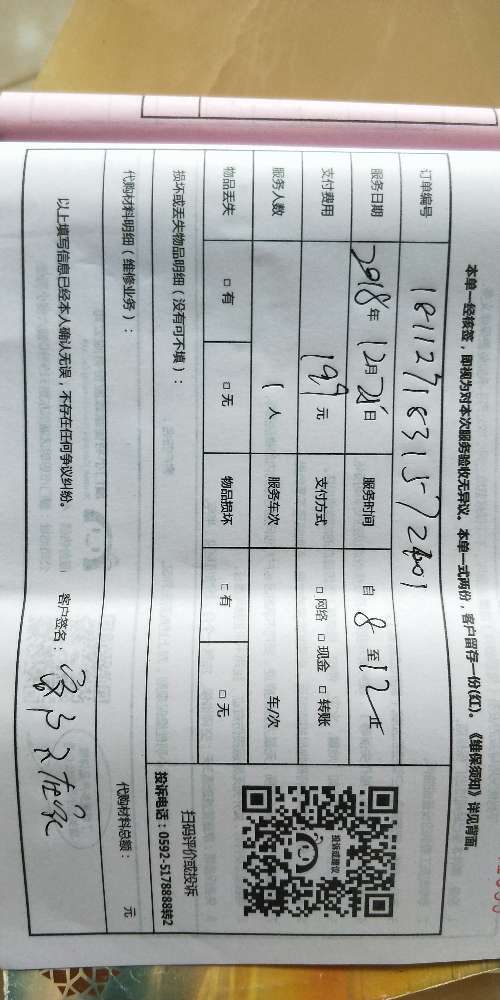 本单一经核签，即视为对本次服务验收无异议。本单一式两份，客户留存一份(红)。《维保须知》详见背面。
订单编号
服务日期 2018年 12月 21日 服务时间 自 8 至 12 止
支付费用 199 元 支付方式 □ 网络 □ 现金 □ 转账
服务人数 1 人 服务车次 车/次
物品丢失 □ 有 □ 无 物品损坏 □ 有 □ 无
投诉或建议
扫码评价或投诉
投诉电话：0592-5178888转2
损坏或丢失物品明细（没有可不填）：
代购材料明细（维修业务）： 代购材料总额： 元
以上填写信息已经本人确认无误，不存在任何争议纠纷。 客户签名：